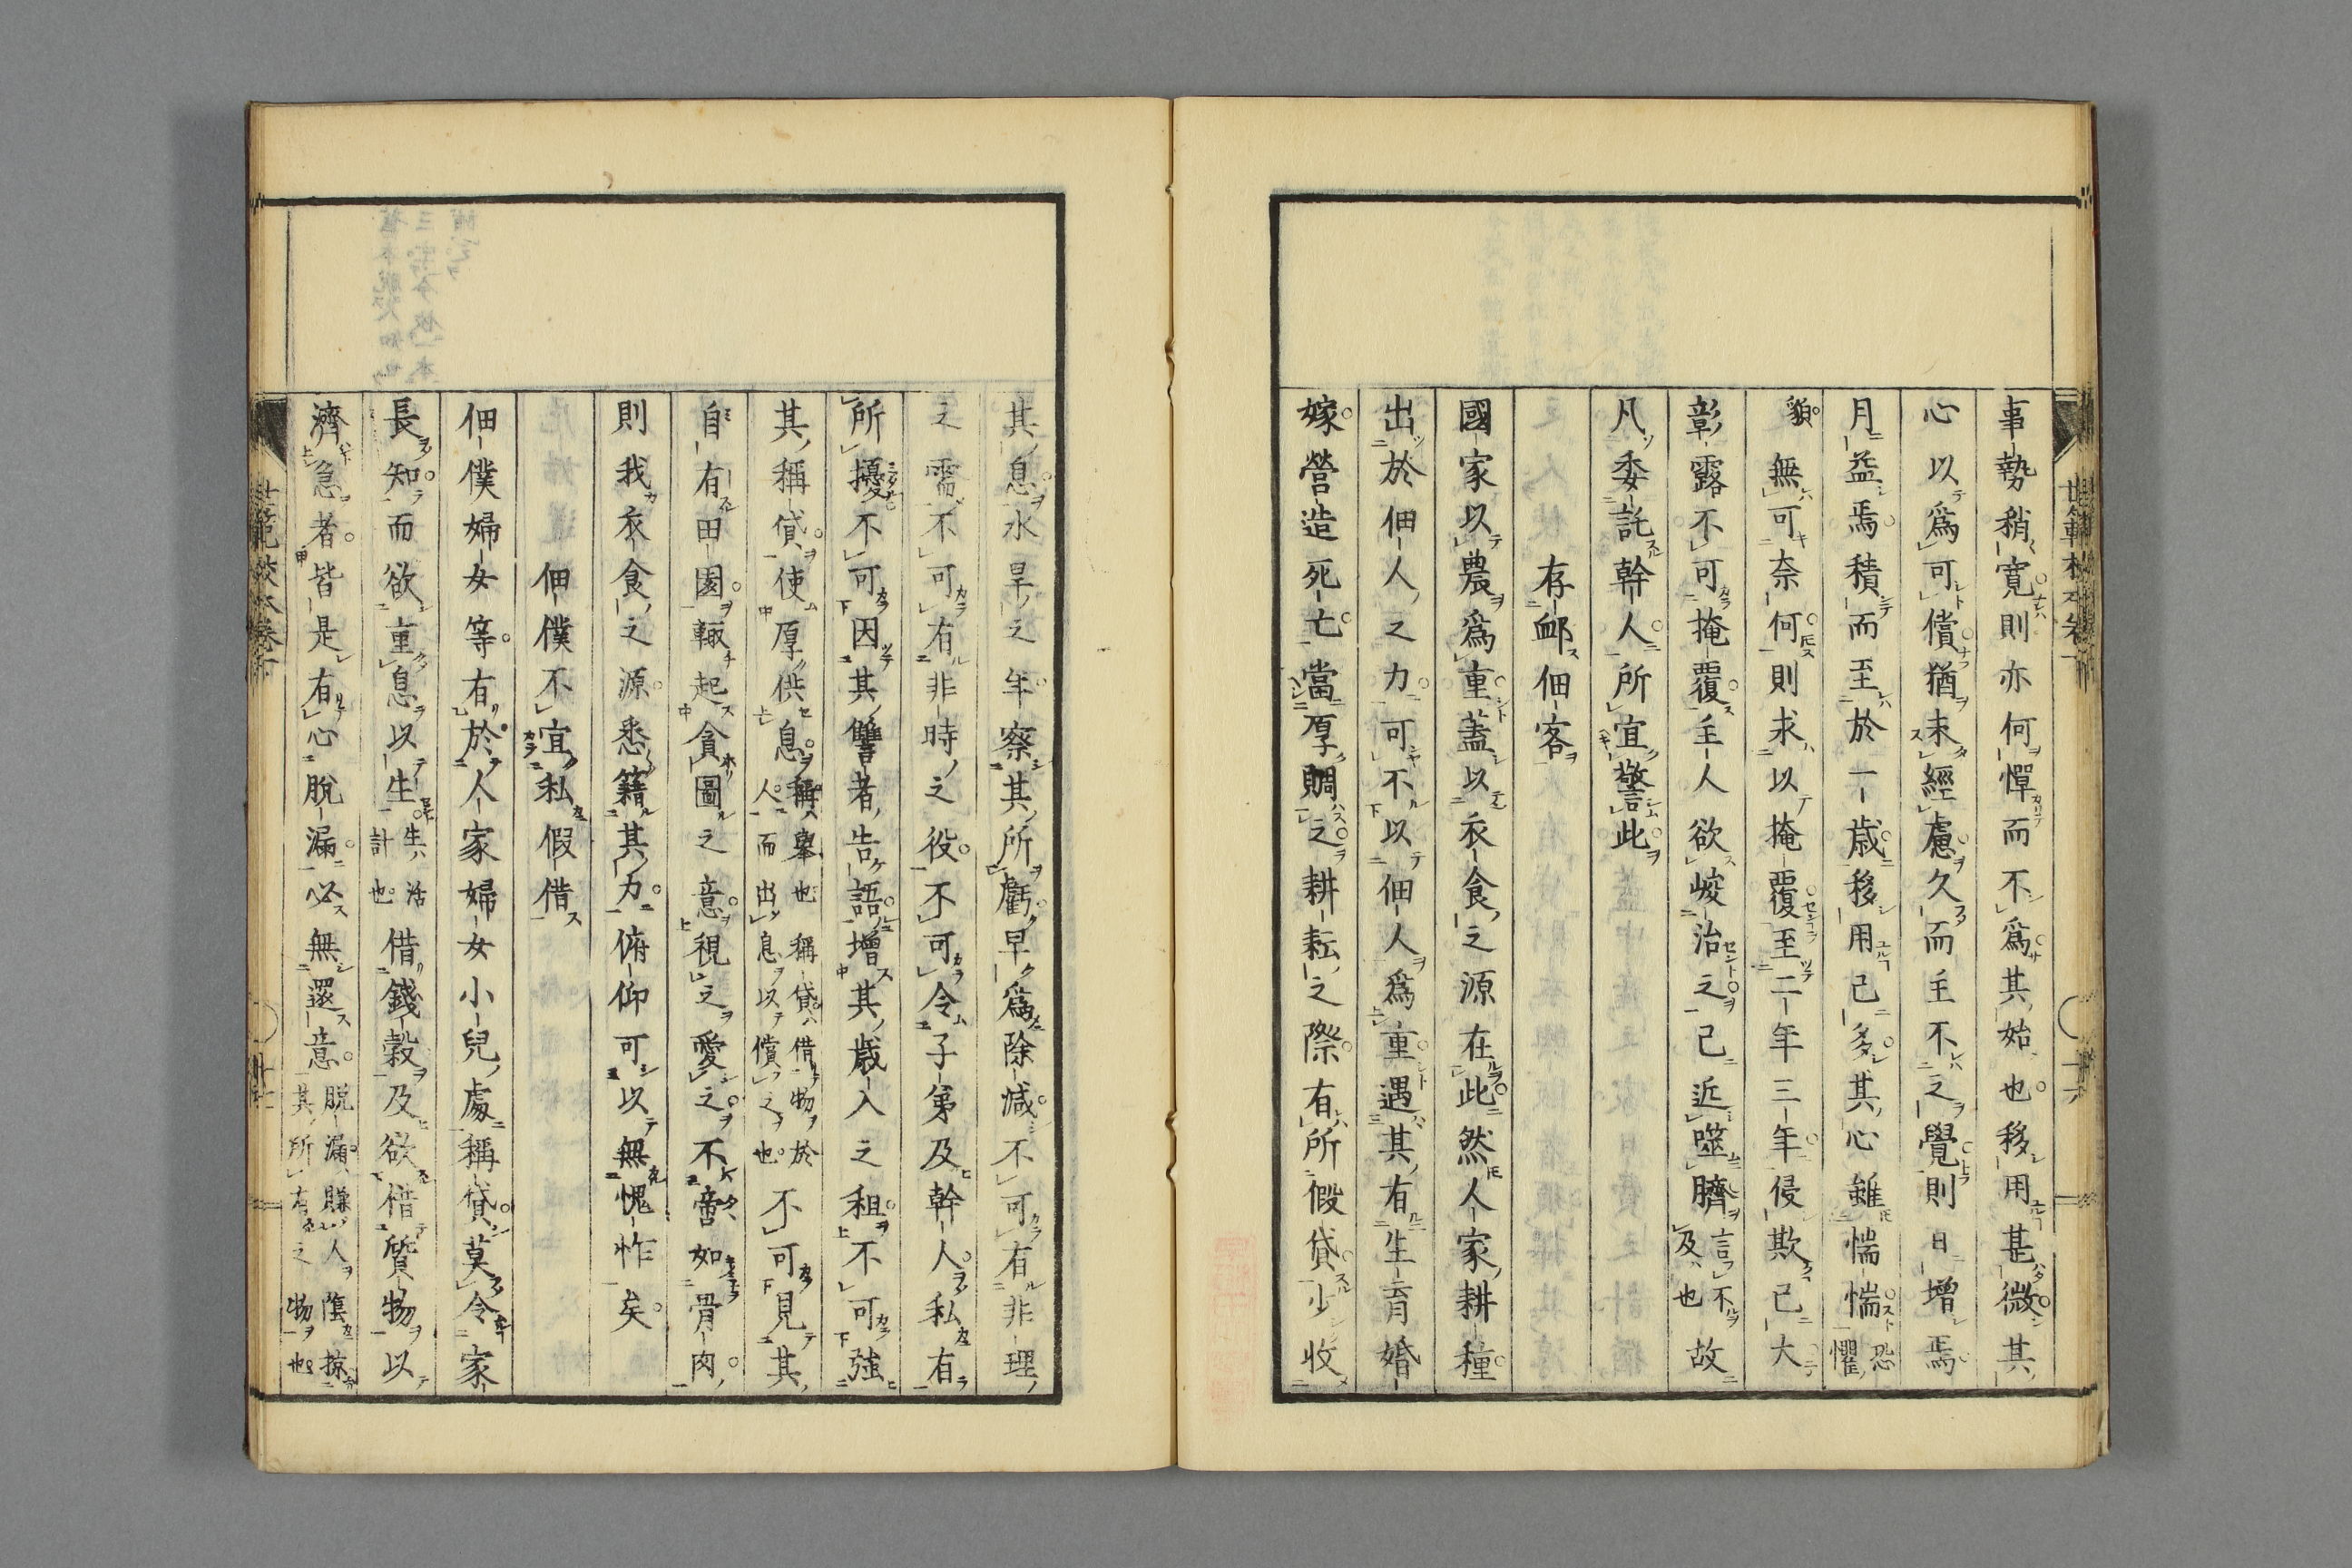 事勢稍寛則亦何憚而不爲其始也移用甚微其
心以爲可償猶未經慮久而主不之覺則日增焉
月益焉積而至於一歳移用已多其心雖惴惴恐懼
貌無可奈何則求以掩覆至二年三年侵欺已大
彰露不可掩覆主人欲峻治之已近噬臍言不及也故
凡委託幹人所宜警此
存䘏佃客
國家以農爲重蓋以衣食之源在此然人家耕種
出於佃人之力可不以佃人爲重遇其有生育婚
嫁營造死亡當厚賙之耕耘之際有所假貸少收
其息水旱之年察其所虧早爲除減不可有非理
之需不可有非時之役不可令子弟及幹人私有
所擾不可因其讐者告語增其歳入之租不可強
其稱貸使厚供息稱擧也稱貸借物於人而出息以償之也不可見其
自有田園輙起貪圖之意視之愛之不啻如骨肉
則我衣食之源悉籍其力俯仰可以無愧怍矣
佃僕不宜私假借
佃僕婦女等有於人家婦女小兒處稱貸莫令家
長知而欲重息以生生活計也借錢穀及欲借質物以
濟急者皆是有心脫漏必無還意脫漏賺人隂掠其所有之物也